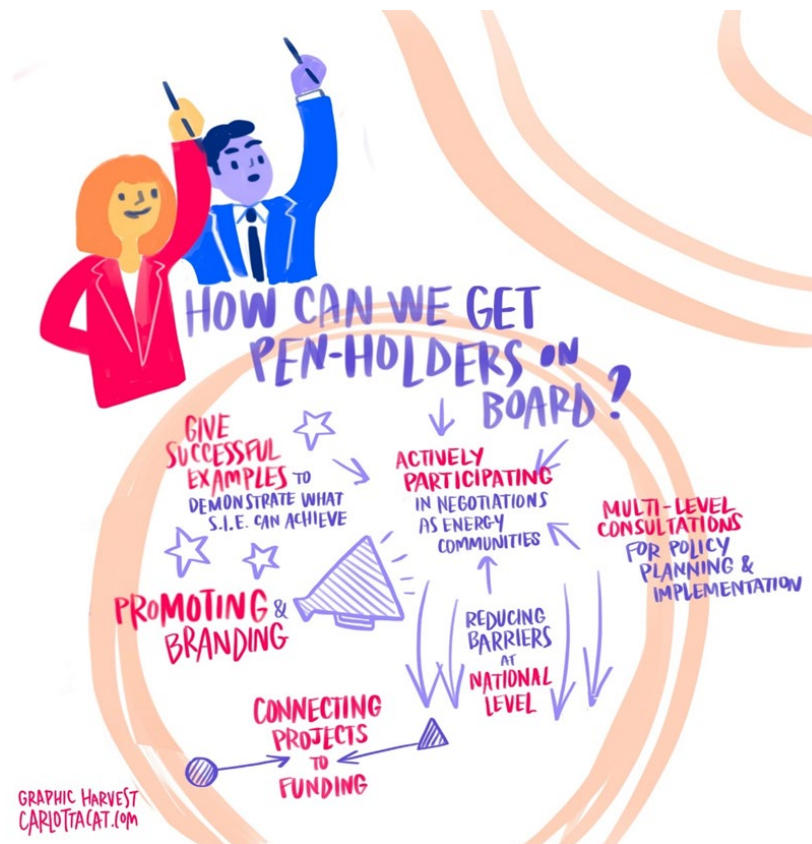 HOW CAN WE GET
PEN-HOLDERS ON
BOARD?
GIVE
SUCCESSFUL
EXAMPLES TO
DEMONSTRATE WHAT
S.I.E. CAN ACHIEVE
ACTIVELY
PARTICIPATING
IN NEGOTIATIONS
AS ENERGY
COMMUNITIES
MULTI-LEVEL
CONSULTATIONS
FOR POLICY
PLANNING &
IMPLEMENTATION
PROMOTING &
BRANDING
REDUCING
BARRIERS
AT
NATIONAL
LEVEL
CONNECTING
PROJECTS
TO
FUNDING
GRAPHIC HARVEST
CARLOTTACAT.COM